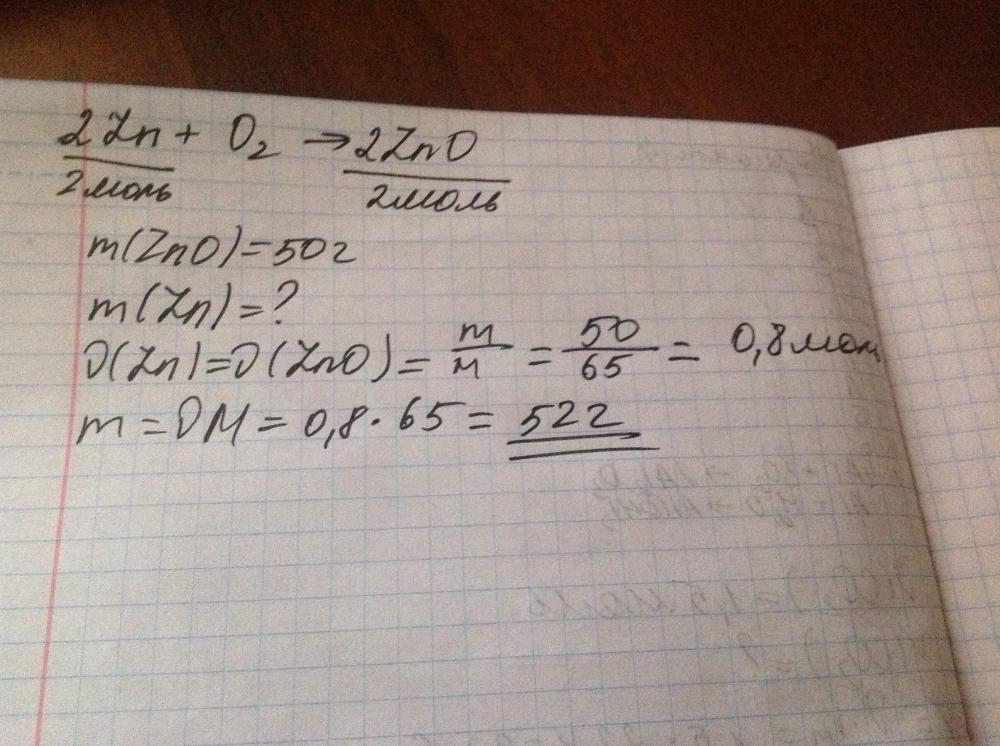 2Zn + O₂ → 2ZnO
2моль 2моль
m(ZnO)=50г
m(Zn)=?
ν(Zn)=ν(ZnO)= m/M = 50/65 = 0,8мол
m=νM=0,8·65=52г